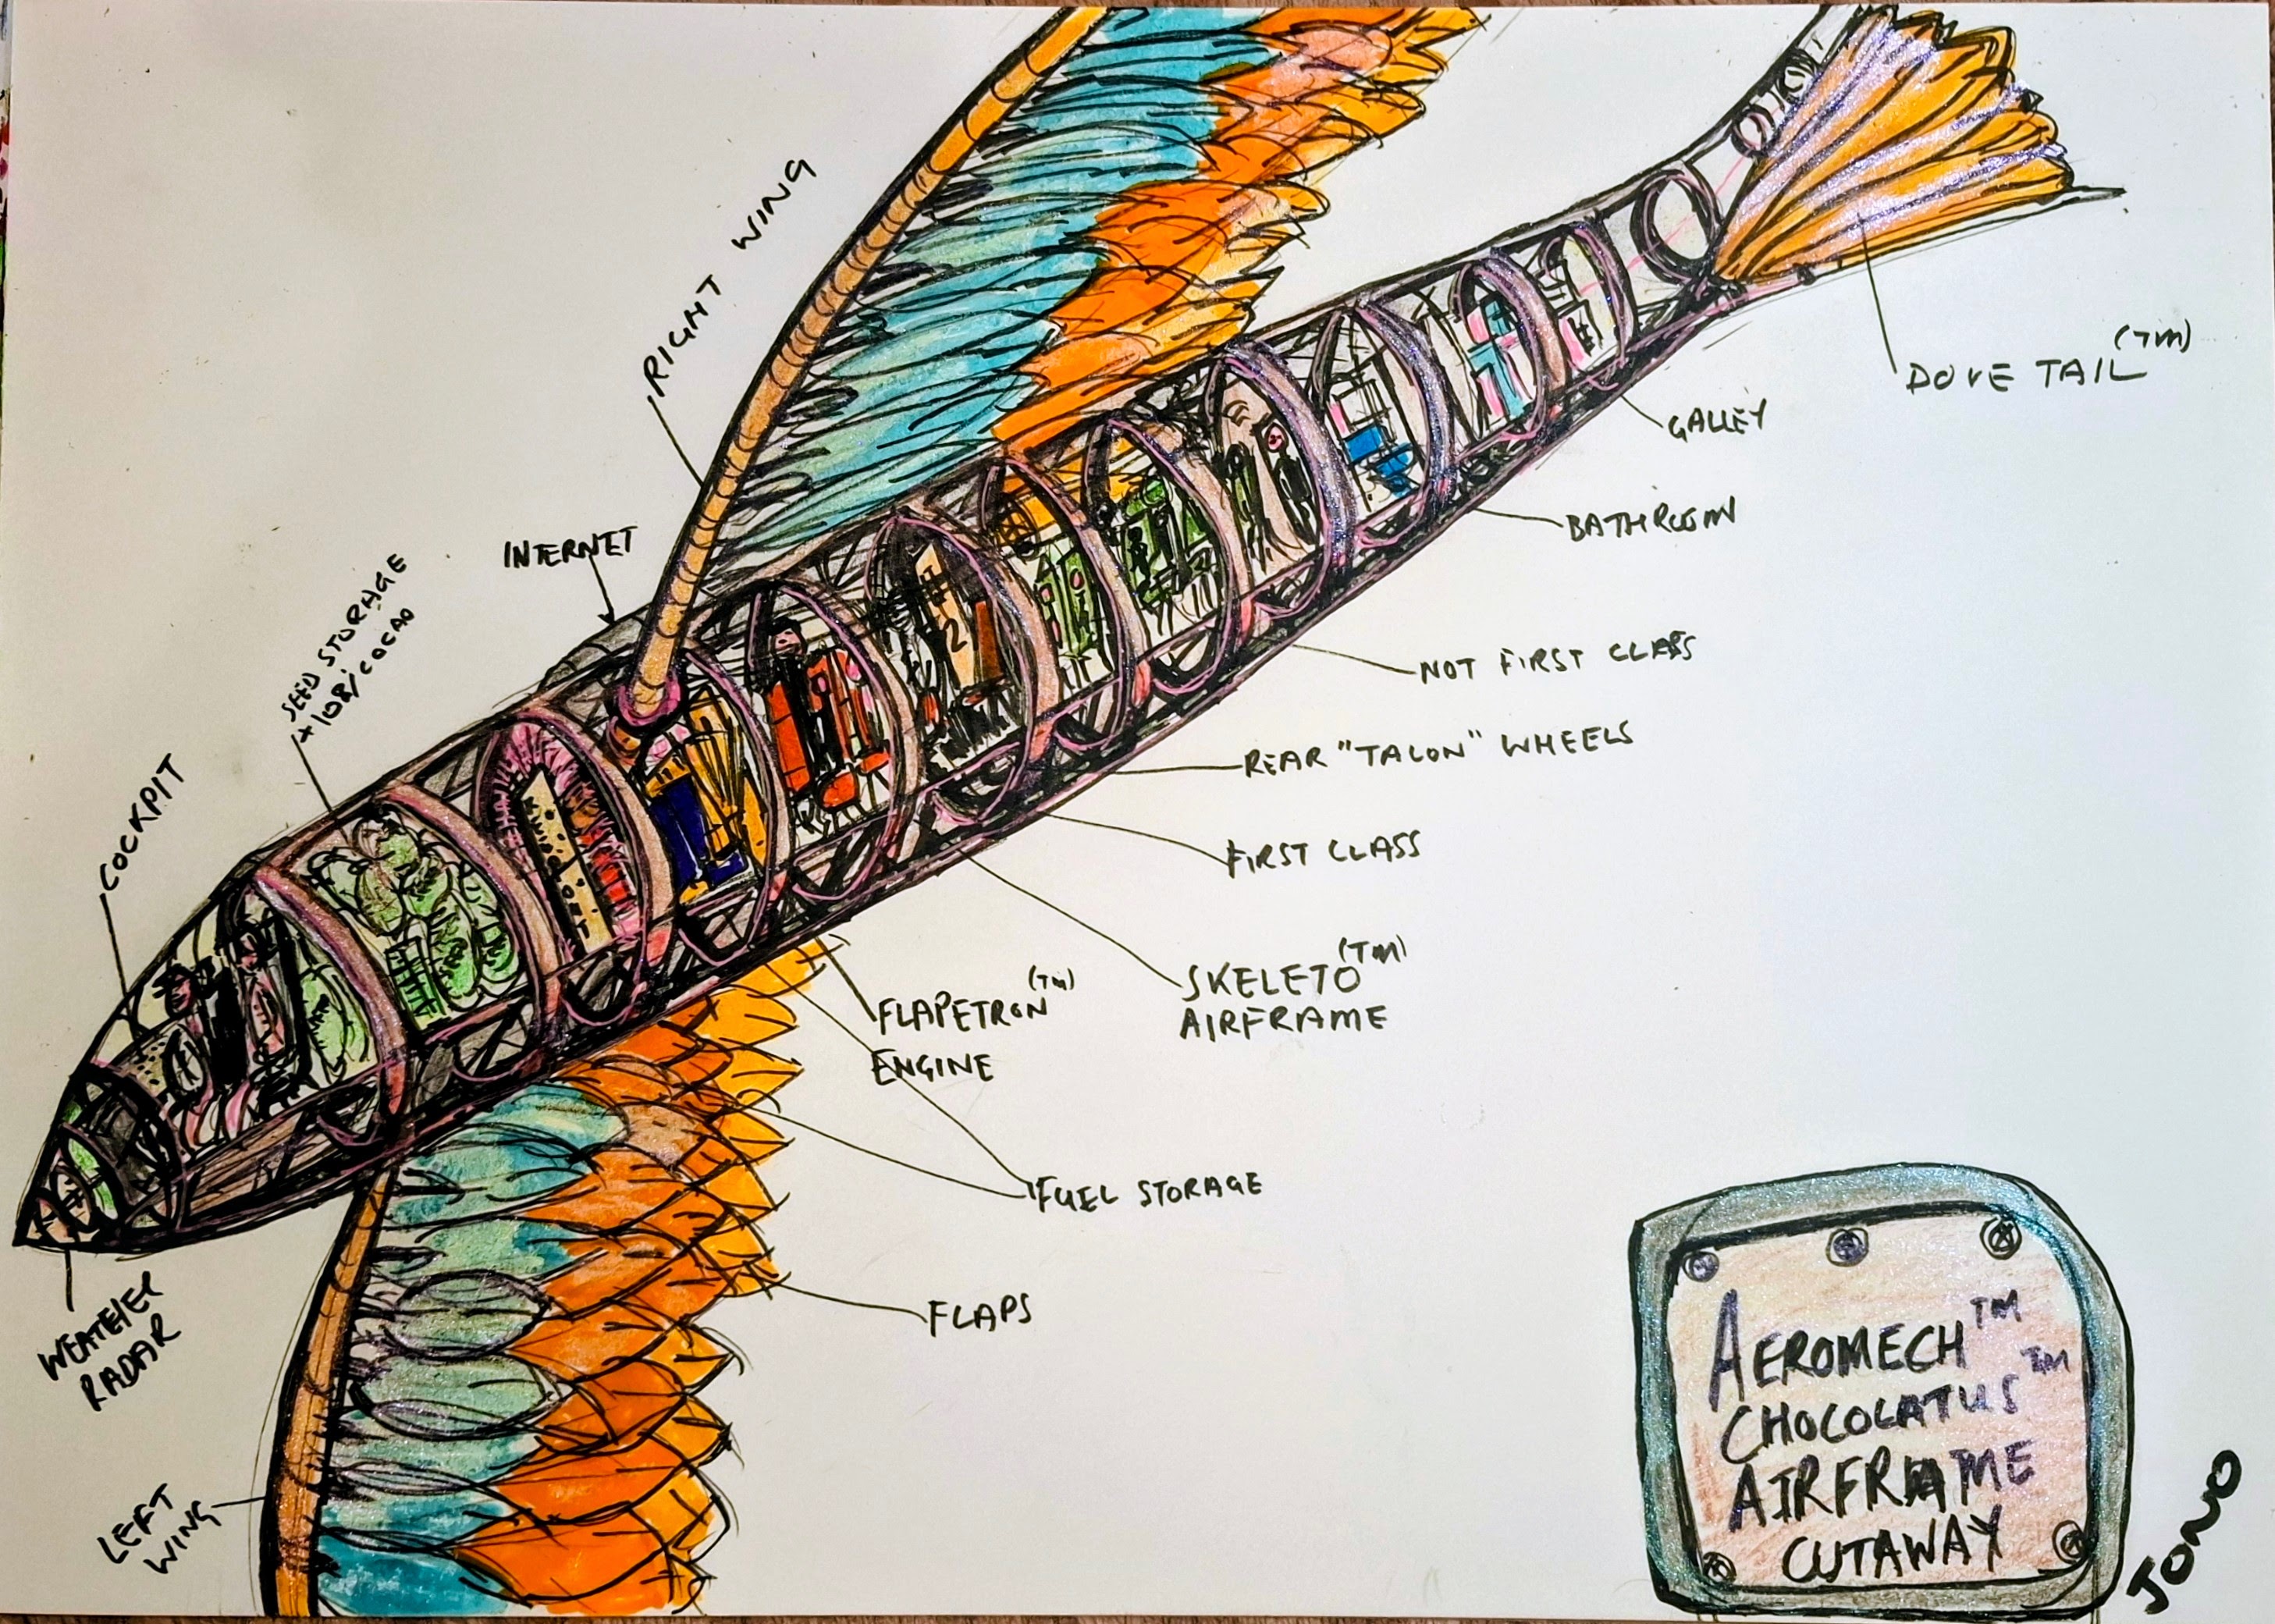 RIGHT WING
INTERNET
SEED STORAGE
COCKPIT
DOVE TAIL (TM)
GALLEY
BATHROOM
NOT FIRST CLASS
REAR "TALON" WHEELS
FIRST CLASS
SKELETO (TM)
AIRFRAME
FLAPETRON (TM)
ENGINE
FUEL STORAGE
FLAPS
WEATHER
RADAR
LEFT
WING
2
AEROMECH TM
CHOCOLATUS TM
AIRFRAME
CUTAWAY
JONO